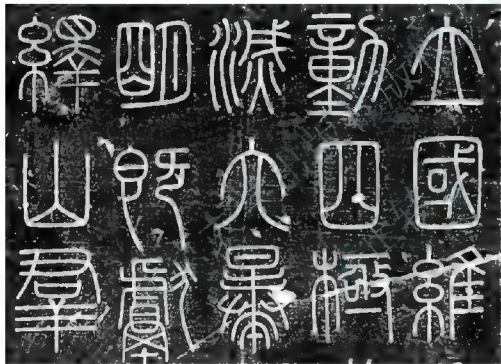 立國維
動四極
滅六暴
明既獻
繹山羣